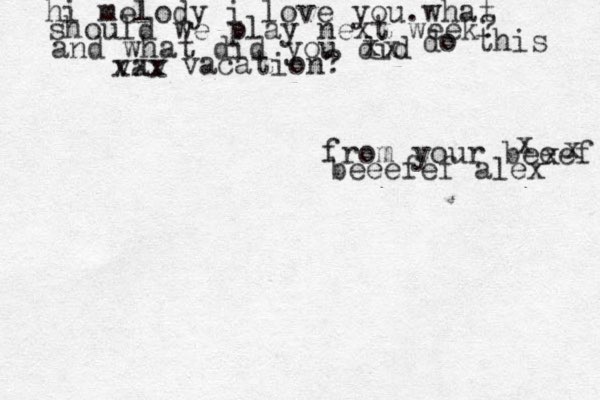 hi melody i love you.what
should we play next week?
and what did you did do this
vax vacation?
from your beeef
beeefef alex